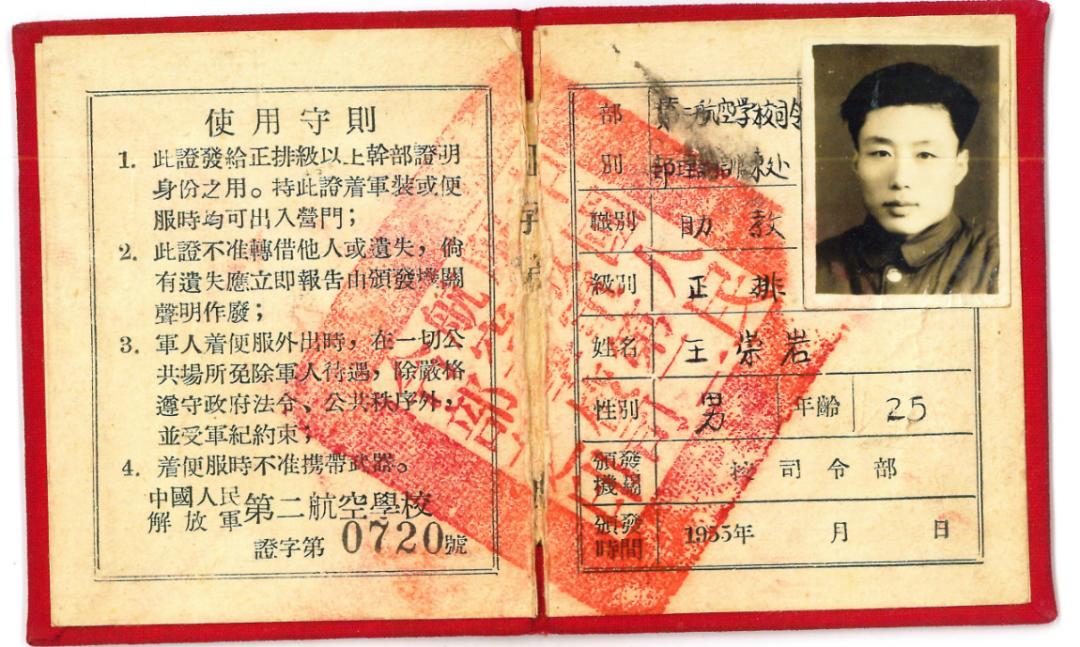 使用守則
1. 此證發給正排級以上幹部證明
身份之用。持此證着軍裝或便
服時均可出入營門；
2. 此證不准轉借他人或遺失，倘
有遺失應立即報告由頒發機關
聲明作廢；
3. 軍人着便服外出時，在一切公
共場所免除軍人待遇，除嚴格
遵守政府法令、公共秩序外，
並受軍紀約束；
4. 着便服時不准携帶武器。
中國人民
解放軍
第二航空學校
證字第 0720號
部別
第二航空学校司令
部理論訓練处
職別 助教
級別 正排
姓名 王崇岩
性別 男 年齡 25
頒發機關 校司令部
頒發時間 1955年 月 日